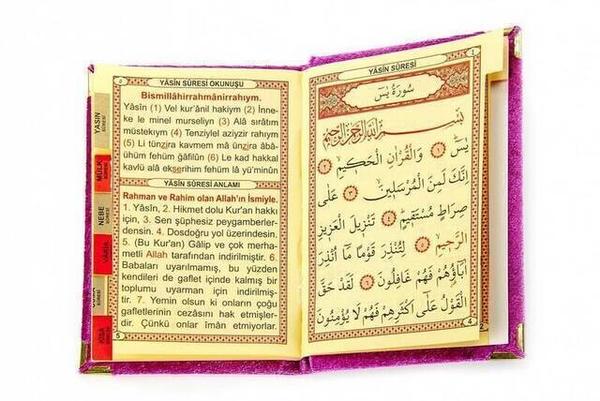 YÂSÎN SÛRESİ OKUNUŞU
Bismillâhirrahmânirrahıym.
Yâsîn (1) Vel kur'ânil hakiym (2) İnne-
ke le minel murseliyn (3) Alâ sırâtim
müstekıym (4) Tenziylel aziyzir rahıym
(5) Li tünzira kavmem mâ ünzira âbâ-
ühüm fehüm ğâfilûn (6) Le kad hakkal
kavlü alâ ekserihim fehüm lâ yü'minûn
YÂSÎN SÛRESİ ANLAMI
Rahman ve Rahim olan Allah'ın İsmiyle.
1. Yâsîn, 2. Hikmet dolu Kur'an hakkı
için, 3. Sen şüphesiz peygamberler-
densin. 4. Dosdoğru yol üzerindesin.
5. (Bu Kur'an) Gâlip ve çok merha-
metli Allah tarafından indirilmiştir. 6.
Babaları uyarılmamış, bu yüzden
kendileri de gaflet içinde kalmış bir
toplumu uyarman için indirilmiş-
tir. 7. Yemin olsun ki onların çoğu
gafletlerinin cezasını hak etmişler-
dir. Çünkü onlar îmân etmiyorlar.
5
YASİN
SÛRESİ
MÜLK
SÛRESİ
NEBE
SÛRESİ
VÂKIA
KISA
YÂSÎN SÛRESİ
سُورَةُ يٰسٓ
بِسْمِ اللّٰهِ الرَّحْمٰنِ الرَّحِيمِ
يٰسٓ ١ وَالْقُرْاٰنِ الْحَكِيمِ ٢
اِنَّكَ لَمِنَ الْمُرْسَلِينَ ٣ عَلٰى
صِرَاطٍ مُسْتَقِيمٍ ٤ تَنْزِيلَ الْعَزِيزِ
الرَّحِيمِ ٥ لِتُنْذِرَ قَوْمًا مَٓا اُنْذِرَ
اٰبَٓاؤُهُمْ فَهُمْ غَافِلُونَ ٦ لَقَدْ حَقَّ
الْقَوْلُ عَلٰٓى اَكْثَرِهِمْ فَهُمْ لَا يُؤْمِنُونَ
4
2